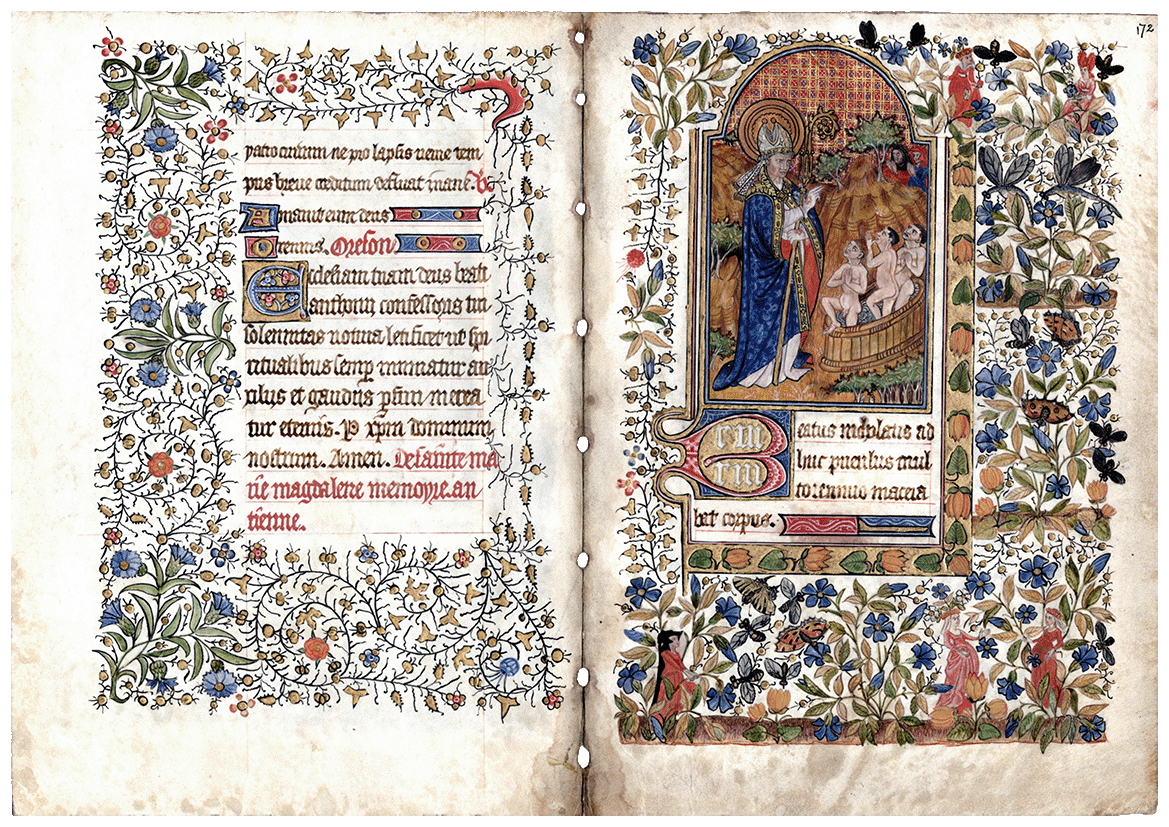 patrocinium ne pro lapsus tem
pus breue creditum defluat inane.
Amauit eum deus
Oreson
Ecclesiam tuam deus beati
anthonii confessoris tui
solennitas uotiua letificet ut spi
ritualibus semp muniatur au
xiliis et gaudiis pfrui merea
tur eternis. P xpm dominum
nostrum. Amen. De sainte ma
rie magdalene memoyre. an
tienne.
172
Beatus nicholaus ad
huc puerulus mul
to ieiunio macera
bat corpus.